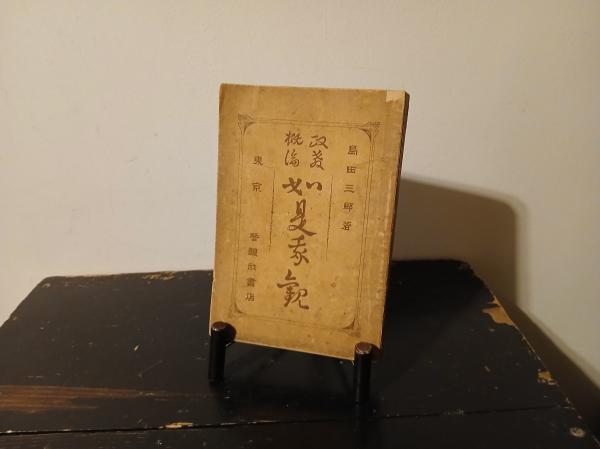 島田三郎著
政教
概論
如是我觀
東京 警醒社書店